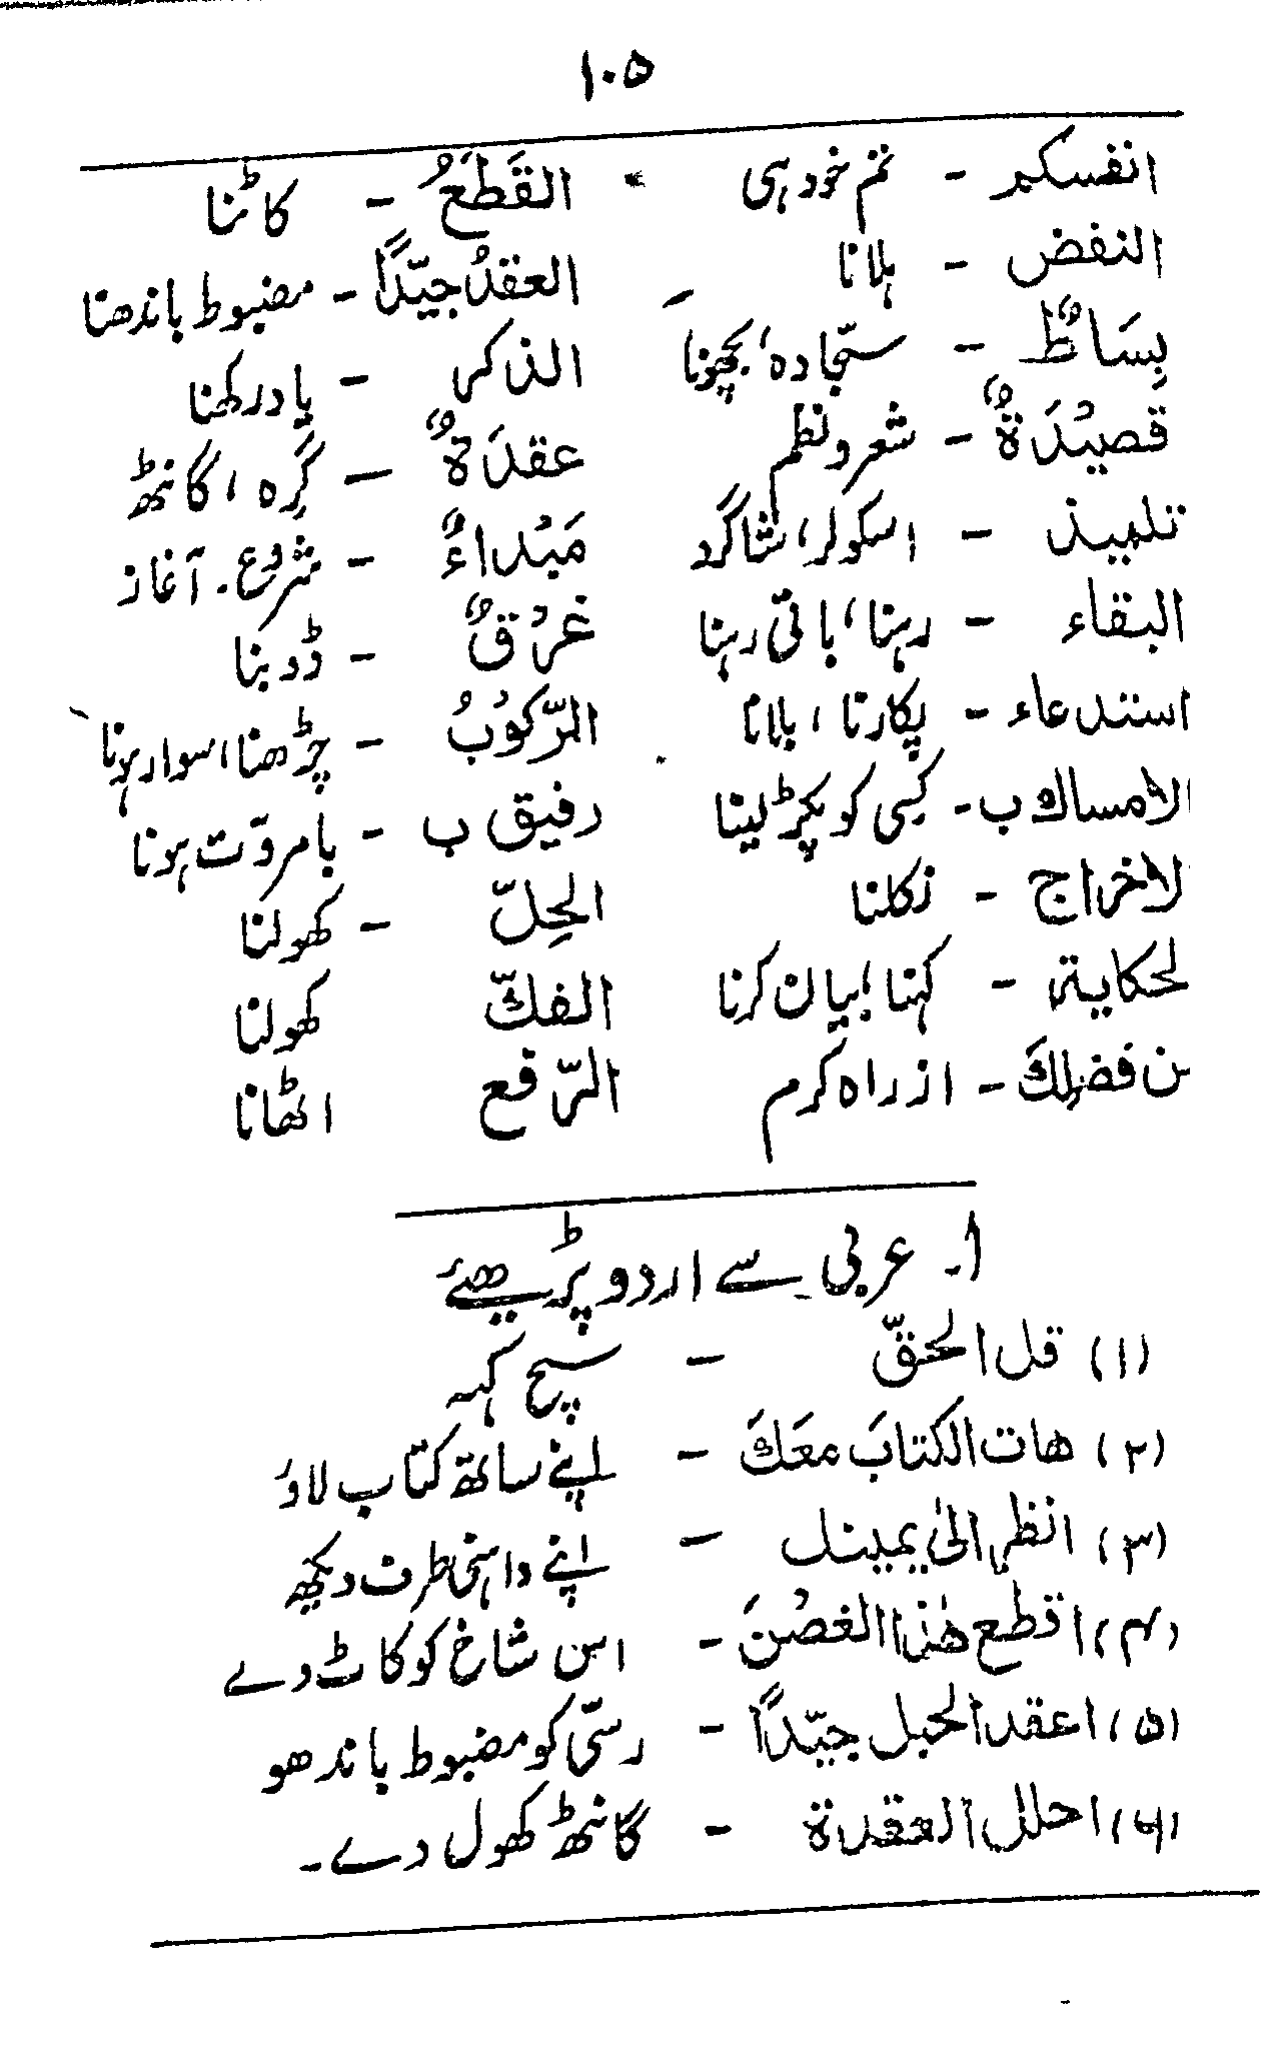 ۱۰۵
انفسکم - تم خود ہی - القَطَعُ - کاٹنا
النفض - ہلانا العقدُ جیّداً - مضبوط باندھنا
بِسَاطٌ - سجّادہ، بچھونا الذکر - یاد رکھنا
قصیْدَۃٌ - شعر و نظم عقدَۃٌ - گِرہ، گانٹھ
تلمیذ - اسکولر، شاگرد مَبْداءٌ - شروع۔ آغاز
البقاء - رہنا، باقی رہنا غرْقٌ - ڈوبنا
استدعاء - پکارنا، بلانا الرّکوْبُ - چڑھنا، سوار ہونا
الامساك ب - کسی کو پکڑ لینا رفیق ب - با مروّت ہونا
لاخراج - نکلنا الحِلّ - کھولنا
لحکایۃ - کہنا، بیان کرنا الفكّ کھولنا
من فضلِكَ - از راہ کرم الرّفع اٹھانا
۱۔ عربی سے اردو پڑھئے
(۱) قل الحقّ - سچ کہہ
(۲) هات الکتابَ معَكَ - اپنے ساتھ کتاب لاؤ
(۳) انظر الیٰ یمینك - اپنے داہنی طرف دیکھ
(۴) اقطع هٰذا الغصْنَ - اس شاخ کو کاٹ دے
(۵) اعقد الحبل جیّداً - رسّی کو مضبوط باندھو
(۶) احلل العقدۃ - گانٹھ کھول دے۔